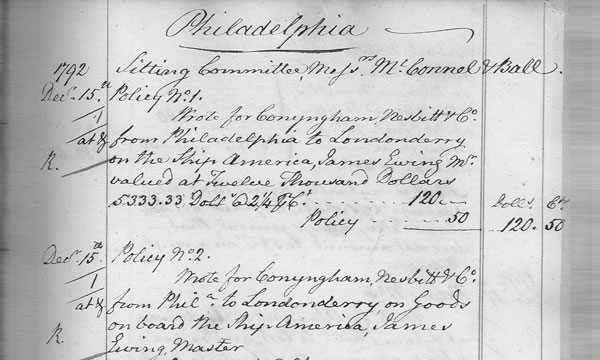 Philadelphia
1792 Sitting Committee, Messrs. McConnel & Ball.
Decr. 15th Policy No. 1.
1 Wrote for Conyngham, Nesbitt & Co.
at & from Philadelphia to Londonderry
R. on the Ship America, James Ewing Mr.
valued at Twelve Thousand Dollars
5333.33 Dolls. @ 2¼ 120 Dolls. Cts
Policy 50 120.50
Decr. 15th Policy No. 2.
1 Wrote for Conyngham, Nesbitt & Co.
at & from Phila. to Londonderry on Goods
on board the Ship America, James
R. Ewing, Master